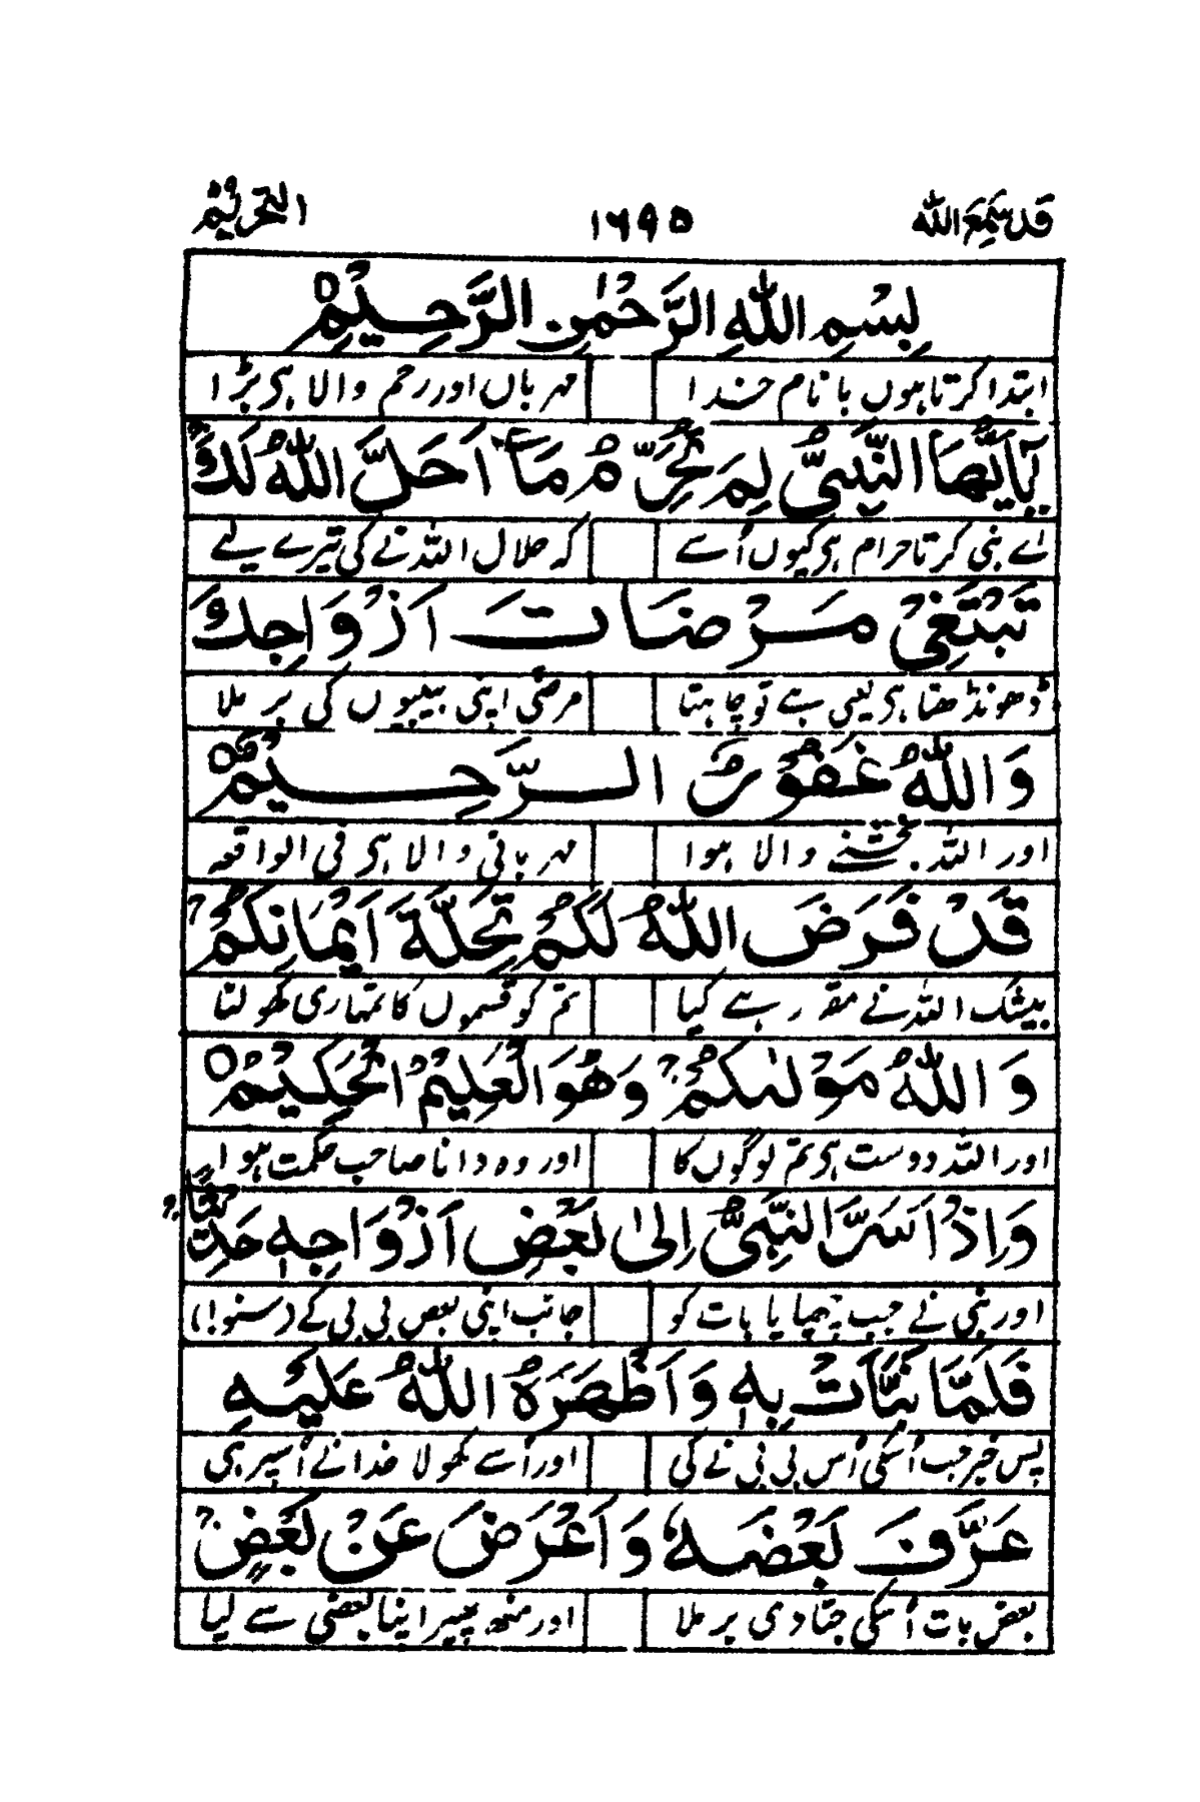 قد سمع الله ١٦٩٥ التحریم
بِسْمِ اللّٰهِ الرَّحْمٰنِ الرَّحِيْمِ ○
ابتدا کرتا ہوں با نام خدا مہرباں اور رحم والا ہی بڑا
يٰۤاَيُّهَا النَّبِيُّ لِمَ تُحَرِّمُ مَاۤ اَحَلَّ اللّٰهُ لَكَ ۚ
اے نبی کرتا حرام ہی کیوں اُسے کہ حلال اللہ نے کی تیرے لیے
تَبْتَغِيْ مَرْضَاتَ اَزْوَاجِكَ ؕ
ڈھونڈھتا ہی یعنی ہے تو چاہتا مرضی اپنی بیبیوں کی برملا
وَ اللّٰهُ غَفُوْرٌ الرَّحِيْمٌ ○
اور اللہ بخشنے والا ہوا مہربانی والا ہی فی الواقعہ
قَدْ فَرَضَ اللّٰهُ لَكُمْ تَحِلَّةَ اَيْمَانِكُمْ ۚ
بیشک اللہ نے مقرر ہے کیا تم کو قسموں کا تمہاری کھولنا
وَ اللّٰهُ مَوْلٰىكُمْ ۚ وَهُوَ الْعَلِيْمُ الْحَكِيْمُ ○
اور اللہ دوست ہی تم لوگوں کا اور وہ دانا صاحب حکمت ہوا
وَاِذْ اَسَرَّ النَّبِيُّ اِلٰى بَعْضِ اَزْوَاجِهٖ حَدِيْثًا ۚ
اور نبی نے جب چھپایا بات کو جانب اپنی بعض بی بی کے (سنو!)
فَلَمَّا نَبَّاَتْ بِهٖ وَ اَظْهَرَهُ اللّٰهُ عَلَيْهِ
پس خبر جب اُسکی اُس بی بی نے کی اور اُسے کھولا خدا نے اُسپر بھی
عَرَّفَ بَعْضَهٗ وَ اَعْرَضَ عَنْ بَعْضٍ ۚ
بعض بات اُسکی جتا دی برملا اور منھ پھیر اپنا بعضی سے لیا